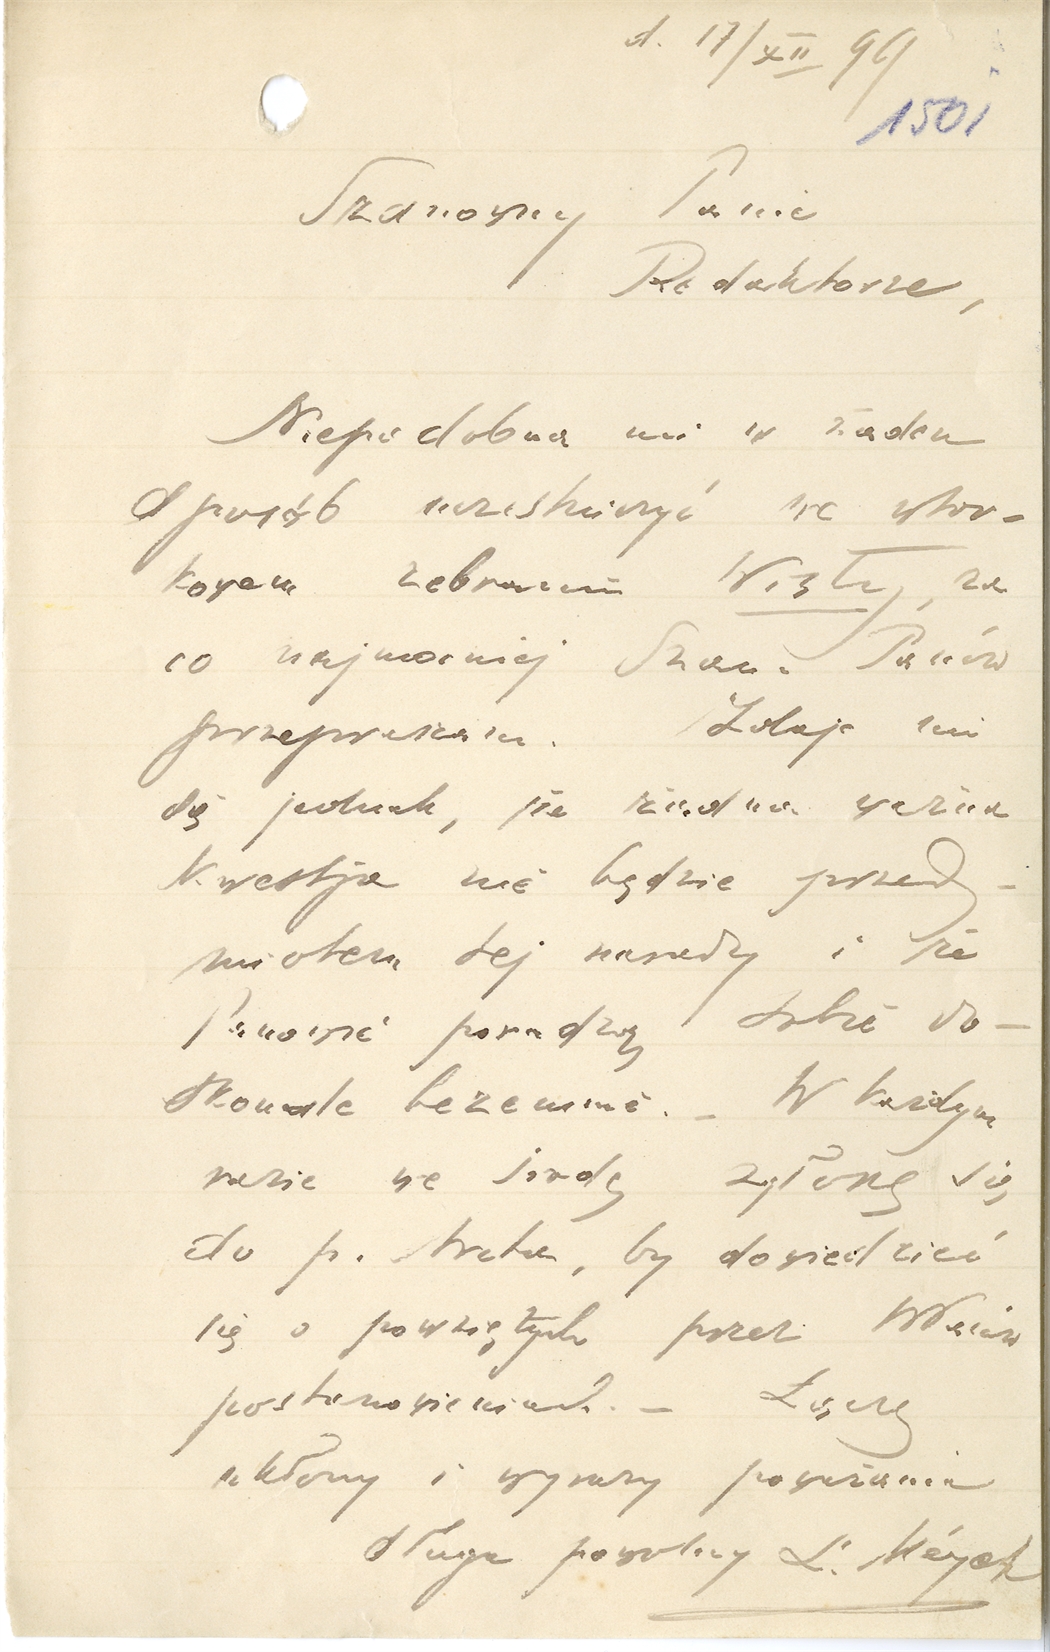 d. 17/XII 99
1501
Szanowny Panie
Redaktorze,
Niepodobna mi w żaden
sposób uczestniczyć we wtor-
kowem zebraniu Wisły, za
co najmocniej Szan. Panów
przepraszam. Zdaje mi
się jednak, że żadna ważna
kwestja nie będzie przed-
miotem tej narady i że
Panowie poradzą sobie do-
skonale bezemnie. – W każdym
razie we środę zgłoszę się
do p. , by dowiedzieć
się o powziętych przez WPanów
postanowieniach. – Łączę
ukłony i wyrazy poważania
sługa powolny L. Méyet